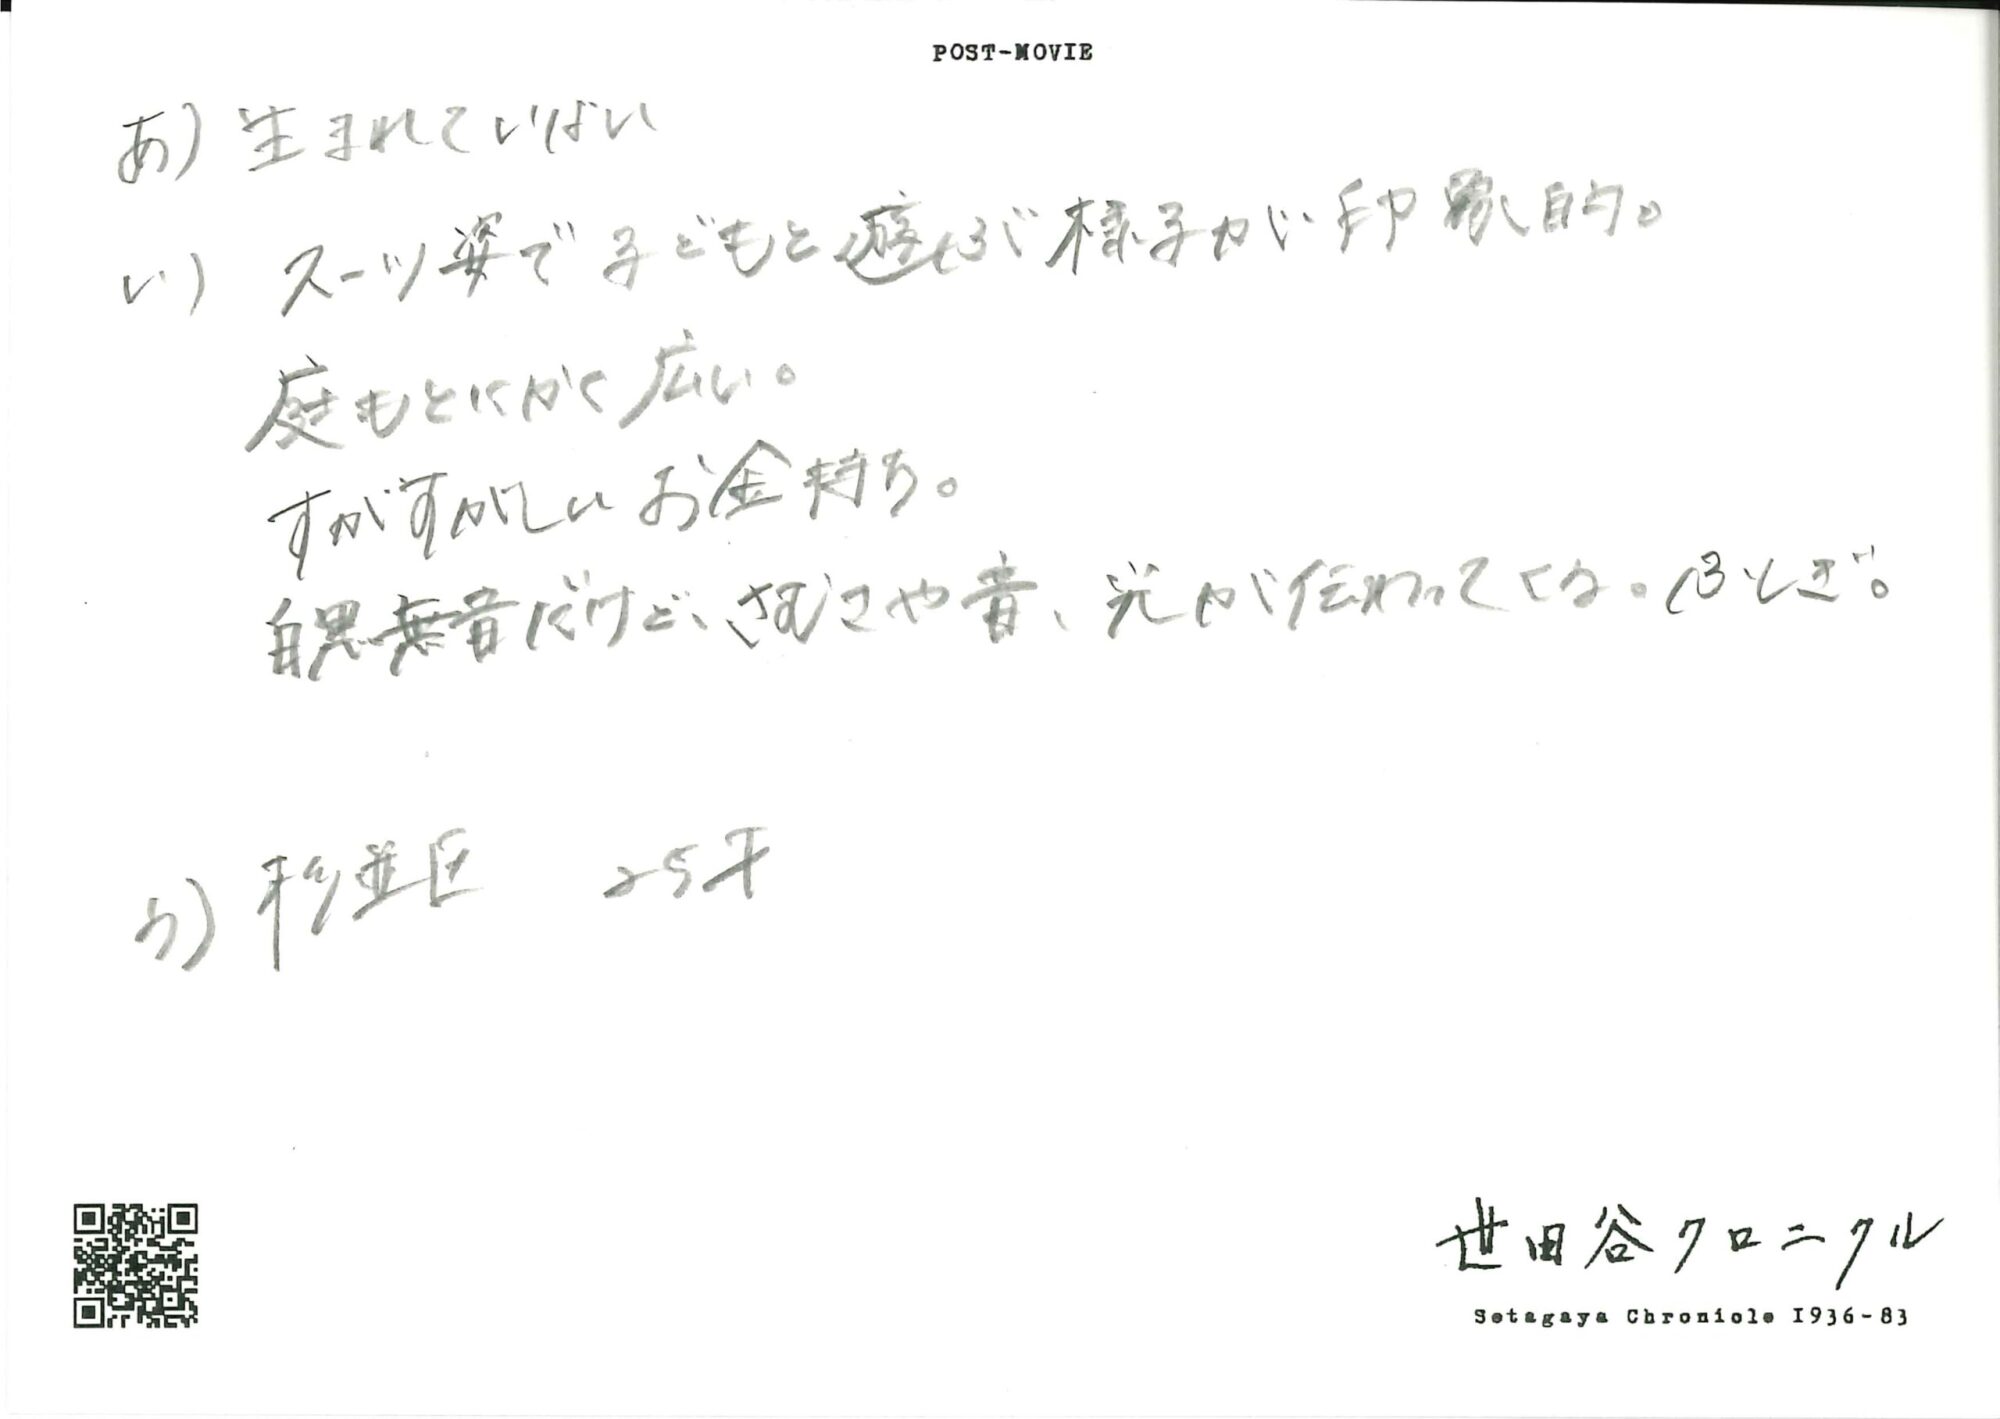 POST-MOVIE
あ) 生まれていない
い) スーツ姿で子どもと遊ぶ様子が印象的。
庭もとにかく広い。
すがすがしいお金持ち。
白黒無音だけど、さむさや音、光が伝わってくる。ふしぎ。
う) 杉並区 25才
世田谷クロニクル
Setagaya Chronicle 1936-83